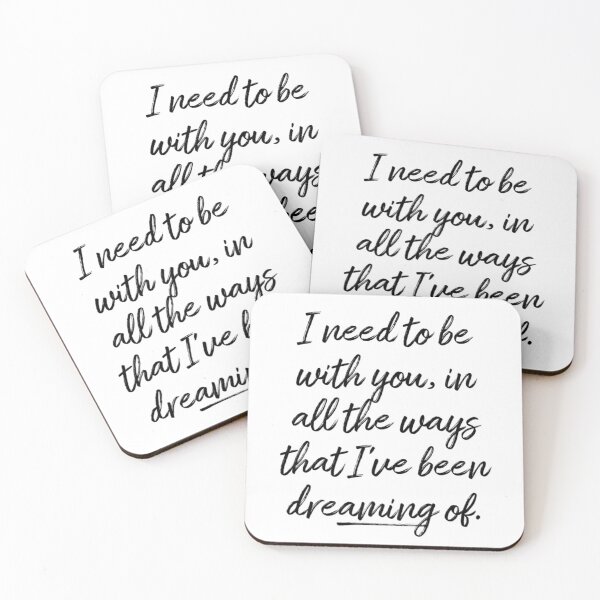 I need to be
with you, in
all the ways
I need to be
with you, in
all the ways
that I've been
of.
I need to be
with you, in
all the ways
that I've
I need to be
with you, in
all the ways
that I've been
dreaming of.